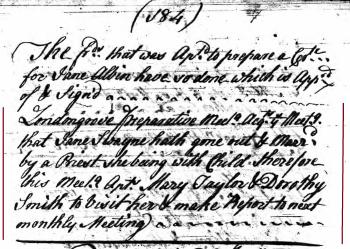 (184)
The Frs. that was Apd. to prepare a Cert...
for Jane Albin have so done which is Appd
of & Sign'd
Londongrove Preparative Meetg. Acqts. Meetg.
that Jane Swayne hath gone out & Marrd.
by a Priest she being with Child therefore
this Meetg. Apts. Mary Taylor & Dorothy
Smith to Visit her & make Report to next
monthly Meeting